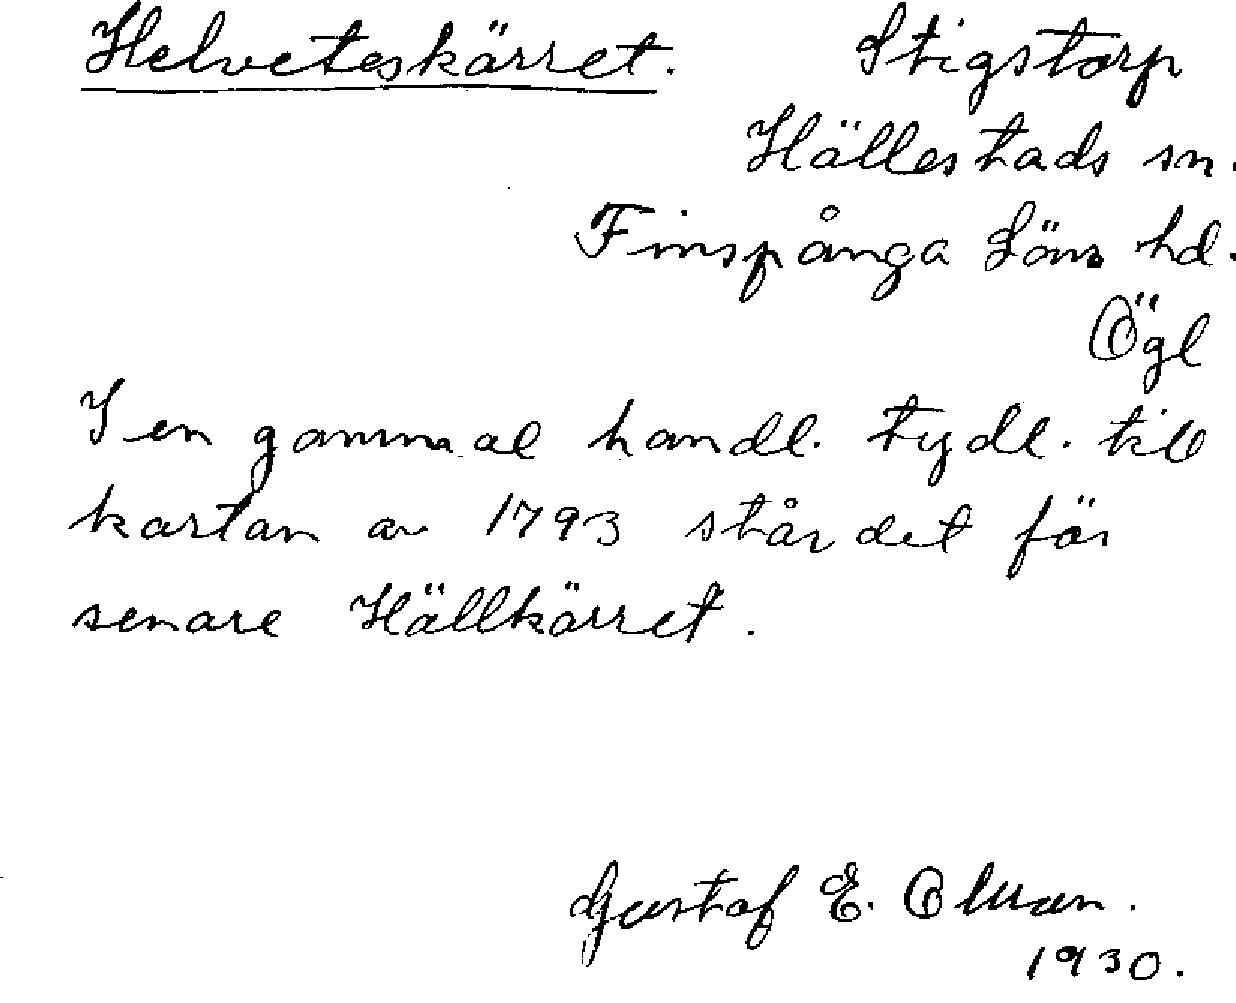 Helveteskärret. Stigstorp
Hällestads sn.
Finspånga läns hd.
Ögl
I en gammal handl. tydl. till
kartan av 1793 står det för
senare Hällkärret.
Gustaf E.
1930.